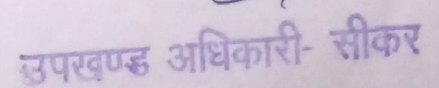 उपखण्ड अधिकारी- सीकर